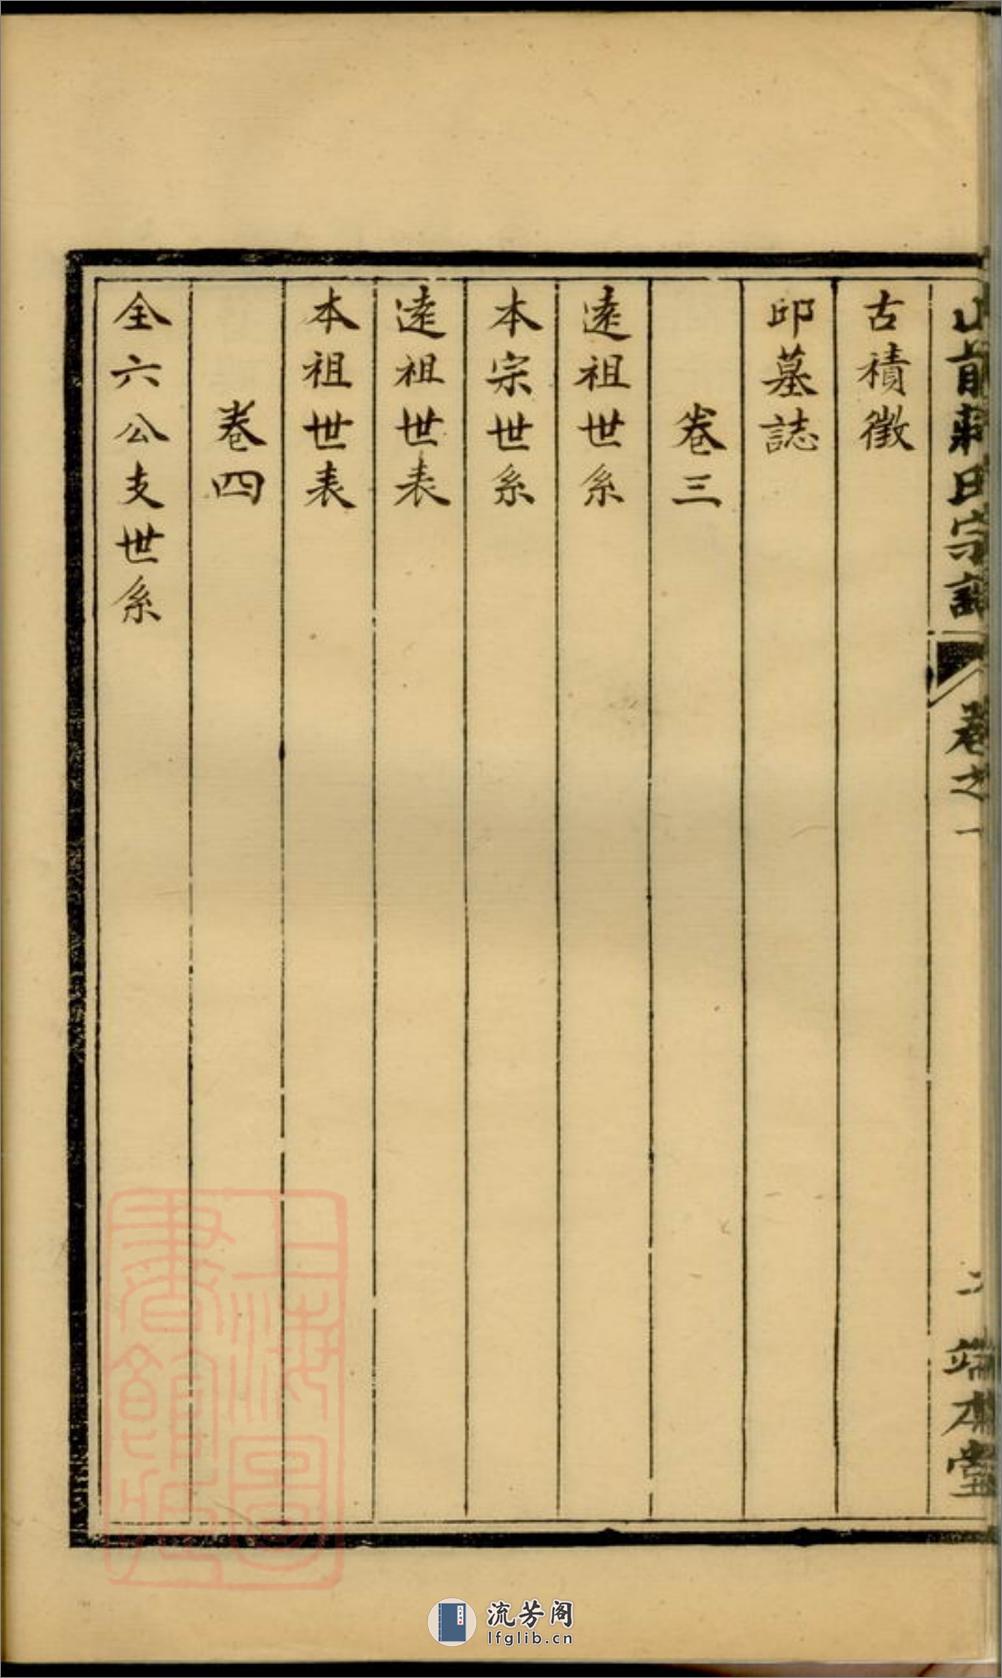 山前蔣氏宗譜 卷之一 二 端本堂
古積徵
邱墓誌
卷三
遠祖世系
本宗世系
遠祖世表
本祖世表
卷四
全六公支世系
上海圖書館藏
流芳阁
lfglib.cn